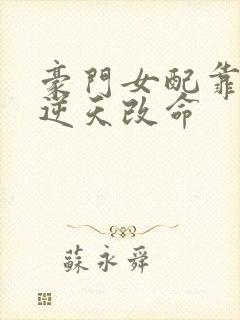 豪門女配靠
逆天改命
蘇永舜